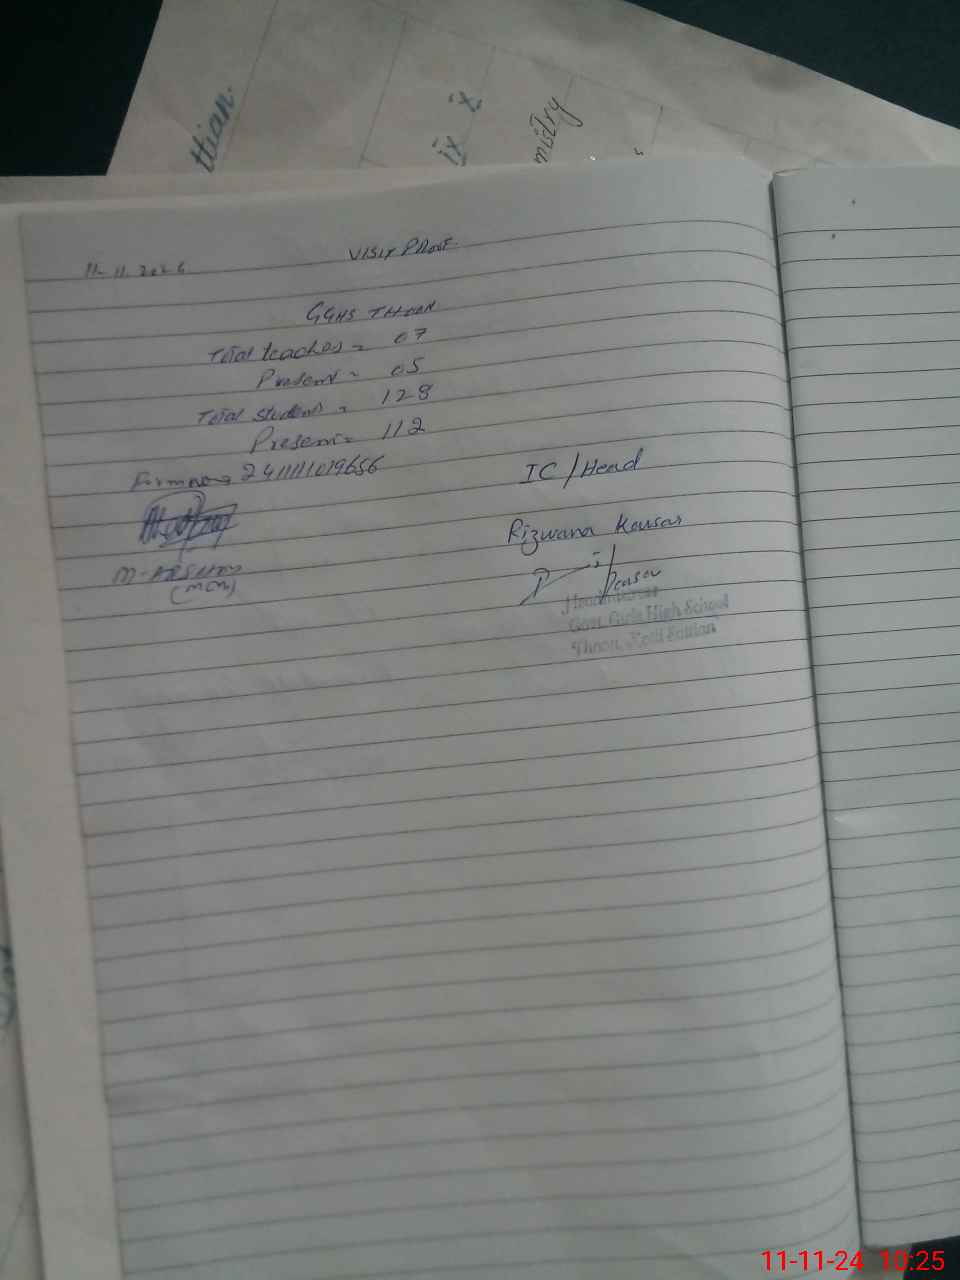 ttian.
ix
x
mistry
VISIT PROOF
11-11-2024
GGHS THOON
Total teaches = 07
Present = 05
Total students = 128
Present = 112
Form no = 241111019656
IC / Head
Rizwana Kausar
M. ARSHAD
Headmistress
Govt. Girls High School
Thoon, Kotli Sattian
11-11-24 10:25